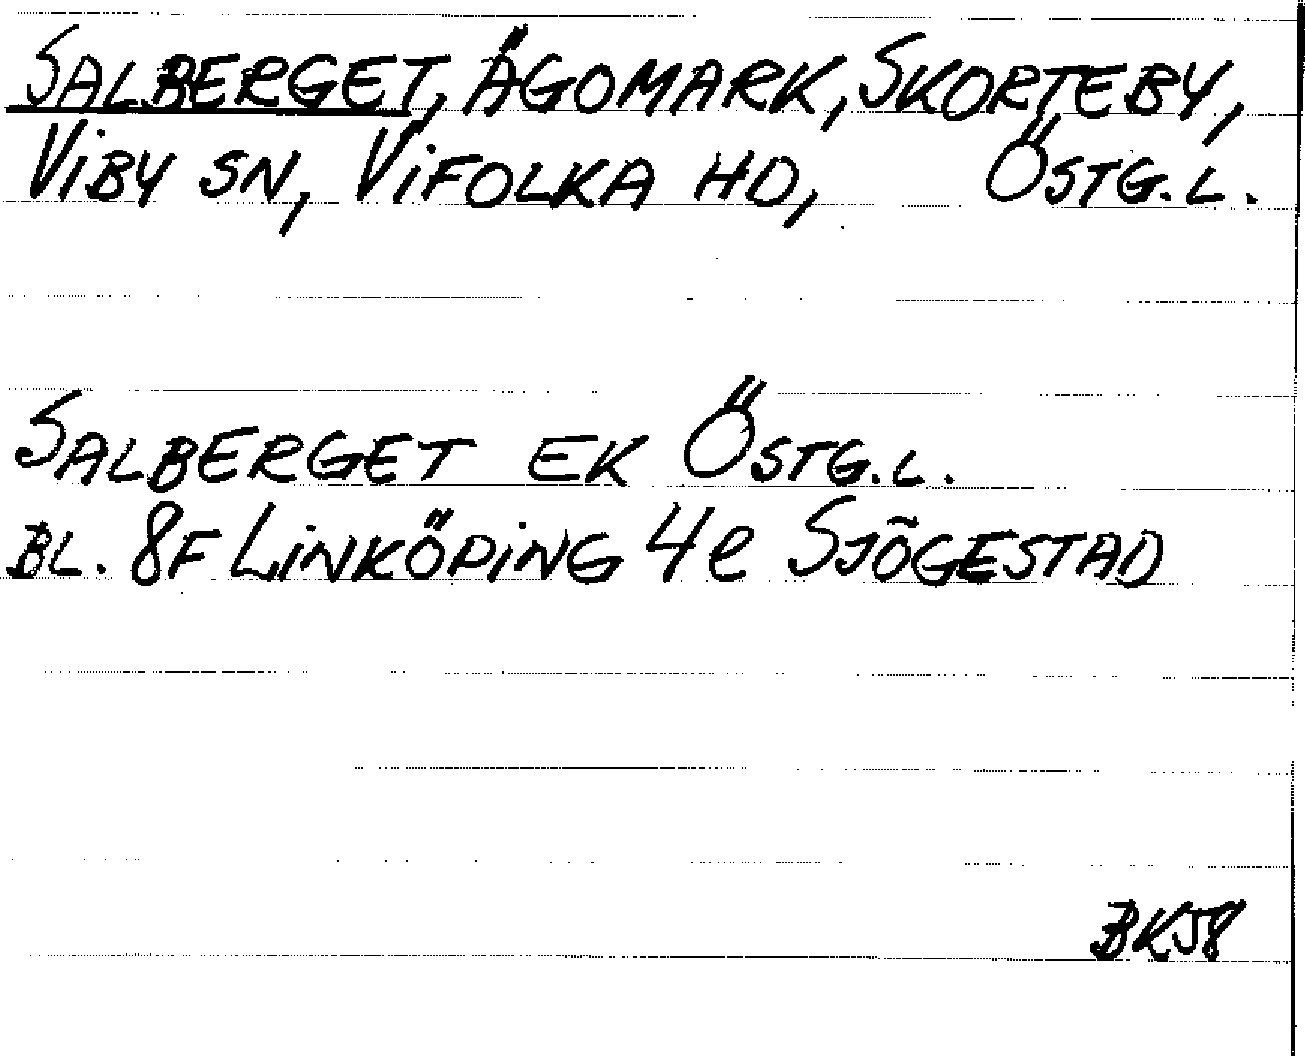 SALBERGET, ÄGOMARK, SKORTEBY,
VIBY SN, VIFOLKA HD, ÖSTG.L.
SALBERGET EK ÖSTG.L.
BL. 8F LINKÖPING 4e SJÖGESTAD